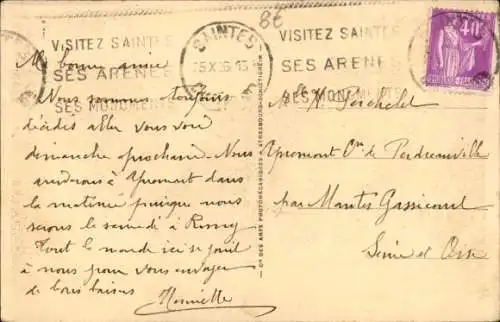 86
VISITEZ SAINTES
SES ARENES
SES MONUMENTS
SAINTES
VISITEZ SAINTES
SES ARENES
SES MONUMENTS
40
Ma bonne amie
Nous sommes toujours
décidés aller vous voir
dimanche prochain. Nous
arriverons à Ypremont dans
la matinée puisque nous
serons le samedi à Rosny
Tout le monde ici se joint
à nous pour vous envoyer
de bons baisers
Henriette
CIE DES ARTS PHOTOMÉCANIQUES STRASBOURG-SCHILTIGHEIM
Ypremont Cne de Perdreauville
par Mantes Gassicourt
Seine et Oise